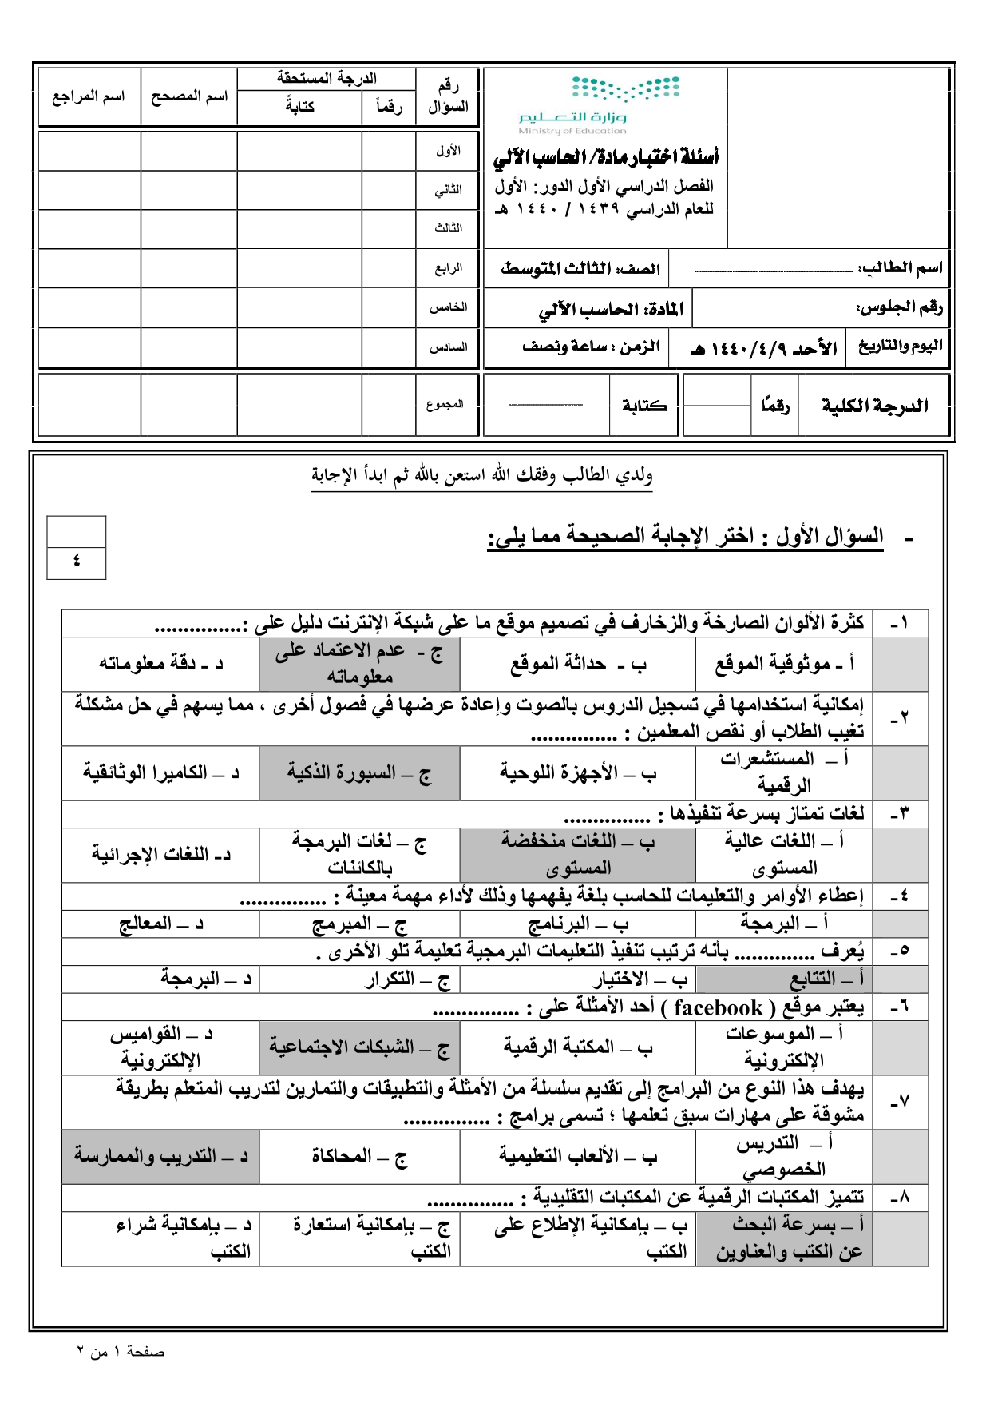 وزارة التعليم
Ministry of Education
أسئلة اختبار مادة/ الحاسب الآلي
الفصل الدراسي الأول الدور: الأول
للعام الدراسي ١٤٣٩ / ١٤٤٠ هـ
اسم الطالب: الصف: الثالث المتوسط
رقم الجلوس: المادة: الحاسب الآلي
اليوم والتاريخ الأحد ١٤٤٠/٤/٩ هـ الزمن : ساعة ونصف
الدرجة الكلية رقمًا كتابة
رقم السؤال الدرجة المستحقة اسم المصحح اسم المراجع
رقماً كتابةً
الأول
الثاني
الثالث
الرابع
الخامس
السادس
المجموع
ولدي الطالب وفقك الله استعن بالله ثم ابدأ الإجابة
- السؤال الأول : اختر الإجابة الصحيحة مما يلي:
٤
١- كثرة الألوان الصارخة والزخارف في تصميم موقع ما على شبكة الإنترنت دليل على :...............
أ - موثوقية الموقع ب - حداثة الموقع ج - عدم الاعتماد على معلوماته د - دقة معلوماته
٢- إمكانية استخدامها في تسجيل الدروس بالصوت وإعادة عرضها في فصول أخرى ، مما يسهم في حل مشكلة
تغيب الطلاب أو نقص المعلمين : ...............
أ – المستشعرات الرقمية ب – الأجهزة اللوحية ج – السبورة الذكية د – الكاميرا الوثائقية
٣- لغات تمتاز بسرعة تنفيذها : ...............
أ – اللغات عالية المستوى ب – اللغات منخفضة المستوى ج – لغات البرمجة بالكائنات د- اللغات الإجرائية
٤- إعطاء الأوامر والتعليمات للحاسب بلغة يفهمها وذلك لأداء مهمة معينة : ...............
أ – البرمجة ب – البرنامج ج – المبرمج د – المعالج
٥- يُعرف .............. بأنه ترتيب تنفيذ التعليمات البرمجية تعليمة تلو الأخرى .
أ – التتابع ب – الاختيار ج – التكرار د – البرمجة
٦- يعتبر موقع ( facebook ) أحد الأمثلة على : ...............
أ – الموسوعات الإلكترونية ب – المكتبة الرقمية ج – الشبكات الاجتماعية د – القواميس الإلكترونية
٧- يهدف هذا النوع من البرامج إلى تقديم سلسلة من الأمثلة والتطبيقات والتمارين لتدريب المتعلم بطريقة
مشوقة على مهارات سبق تعلمها ؛ تسمى برامج : ...............
أ – التدريس الخصوصي ب – الألعاب التعليمية ج – المحاكاة د – التدريب والممارسة
٨- تتميز المكتبات الرقمية عن المكتبات التقليدية : ...............
أ – بسرعة البحث عن الكتب والعناوين ب – بإمكانية الإطلاع على الكتب ج – بإمكانية استعارة الكتب د – بإمكانية شراء الكتب
صفحة ١ من ٢